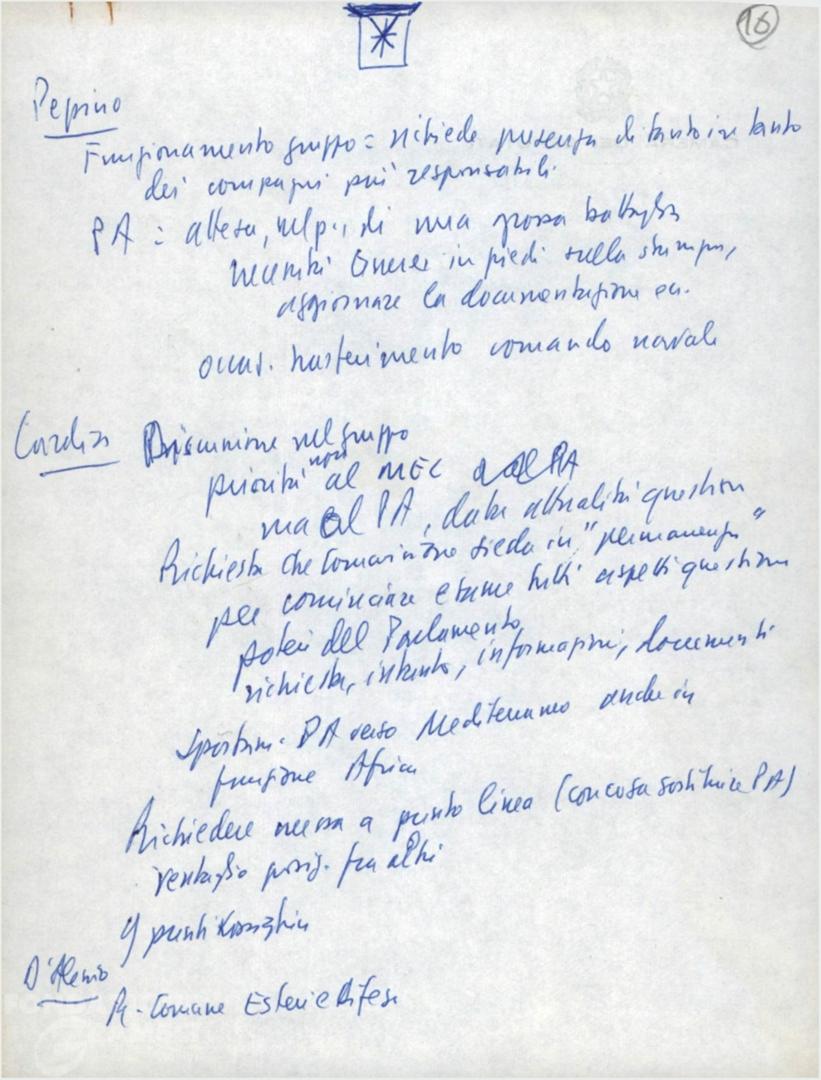 16
Pepino
Funzionamento gruppo = richiede presenza di tanto in tanto
dei compagni più responsabili.
PA = attesa, nel p., di una grossa battaglia
necessità tenere in piedi sulla stampa,
aggiornare la documentazione ecc.
occas. trasferimento comando navale
Cardia Discussione nel gruppo
priorità non al MEC
ma al PA, data attualità question
Richiesta che Comm.ne sieda in "permanenza"
per cominciare esame tutti aspetti questione
poteri del Parlamento
richiesta, intanto, informazioni, documenti
Spostam. PA verso Mediterraneo anche in
funzione Africa
Richiedere messa a punto linea (con cosa sostituire PA)
ventaglio posiz. fra altri
9 punti Kossighin
D'Alessio
R. Comune Esteri e Difesa